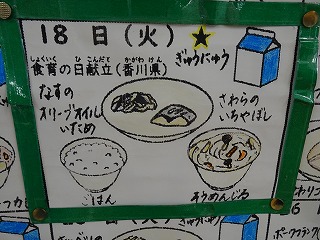 18日(火)
ぎゅうにゅう
しょくいく ひ こんだて かがわけん
食育の日献立(香川県)
なすの
オリーブオイル
いため
さわらの
いちやぼし
ごはん
そうめんじる